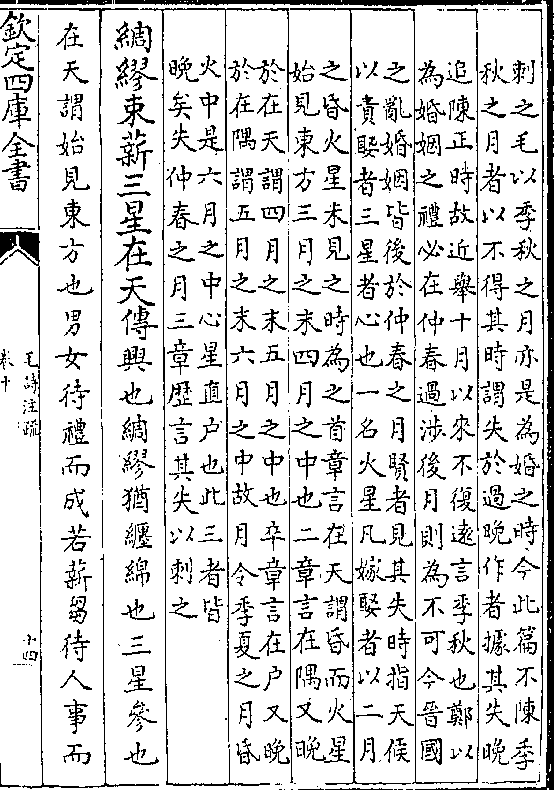 刺之毛以季秋之月亦是為婚之時今此篇不陳季
秋之月者以不得其時謂失於過晚作者據其失晚
追陳正時故近舉十月以來不復遠言季秋也鄭以
為婚姻之禮必在仲春過涉後月則為不可今晉國
之亂婚姻皆後於仲春之月賢者見其失時指天候
以責娶者三星者心也一名火星凡嫁娶者以二月
之昏火星未見之時為之首章言在天謂昏而火星
始見東方三月之末四月之中也二章言在隅又晚
於在天謂四月之末五月之中也卒章言在户又晚
於在隅謂五月之末六月之中故月令季夏之月昏
火中是六月之中心星直户也此三者皆
晚矣失仲春之月三章歷言其失以刺之
綢繆束薪三星在天傳興也綢繆猶纏綿也三星參也
在天謂始見東方也男女待禮而成若薪芻待人事而
欽定四庫全書
毛詩注疏
卷十
十四